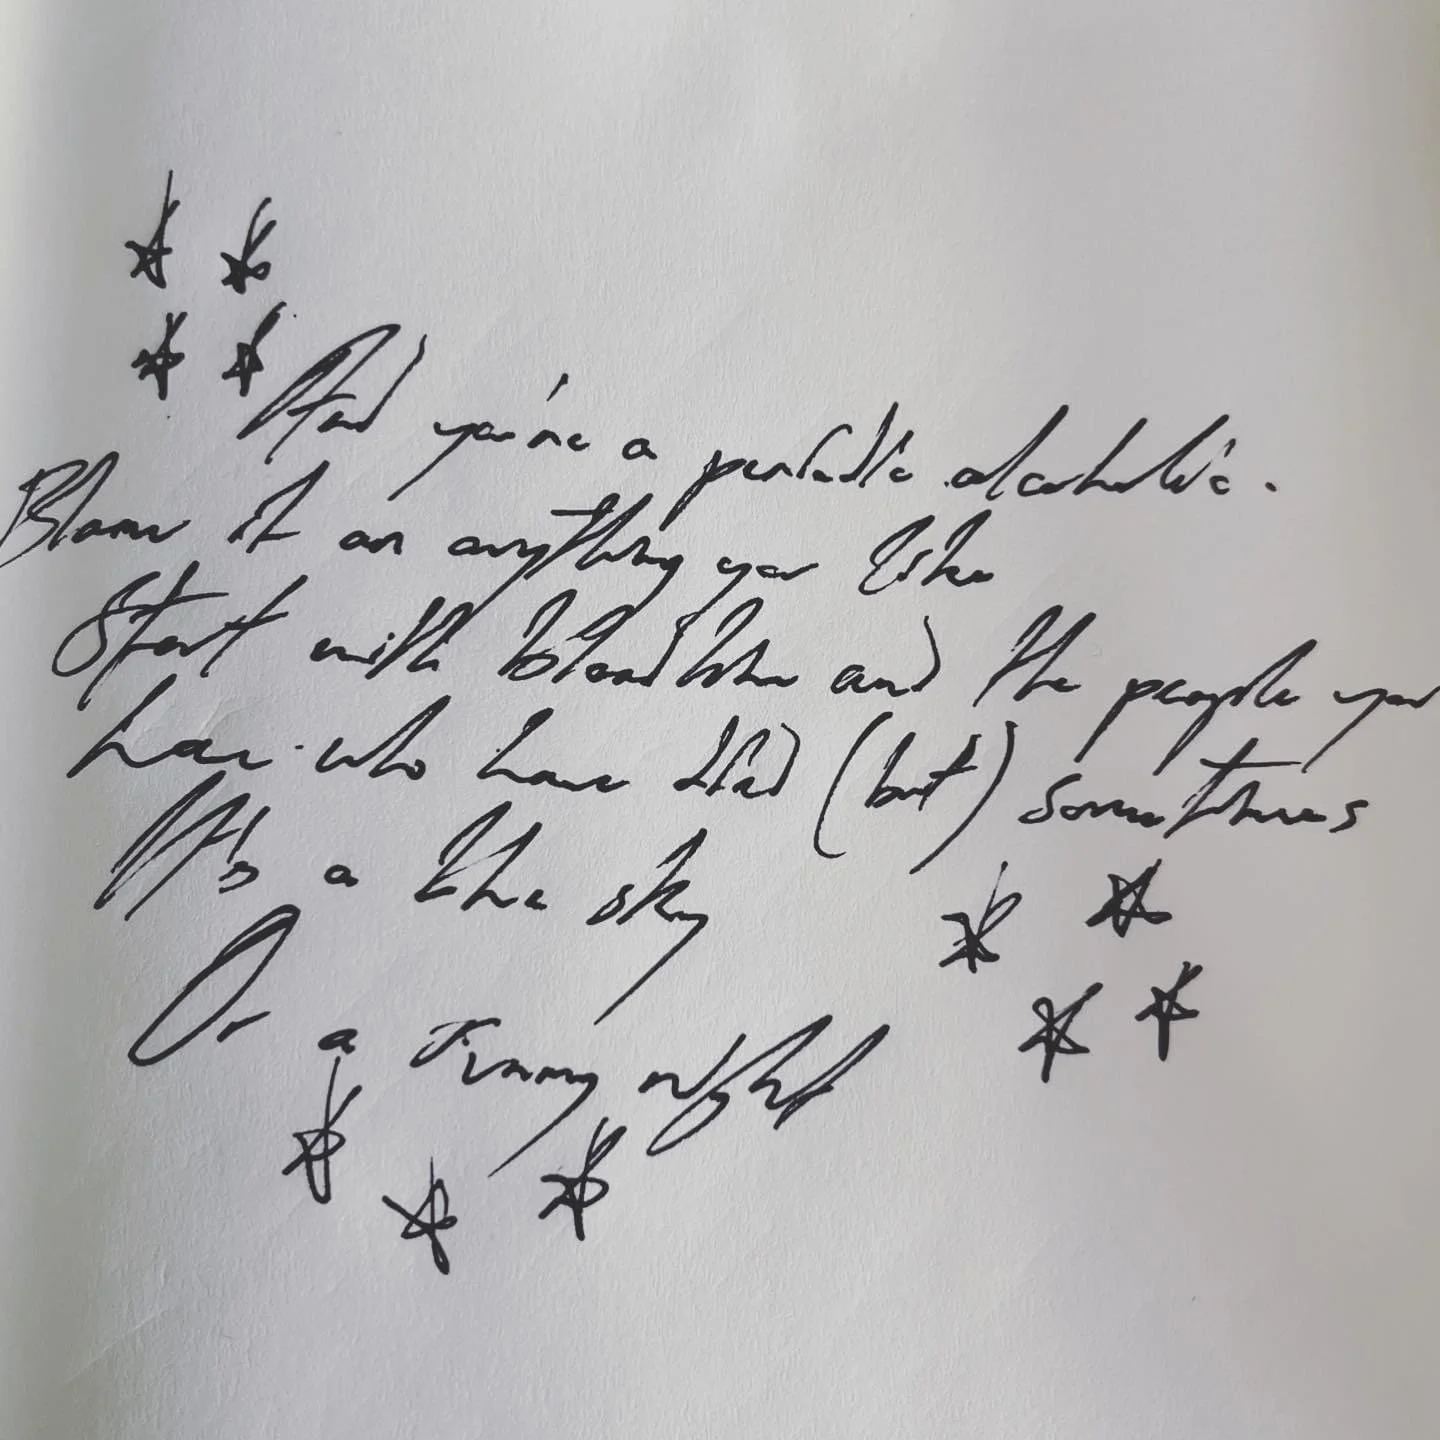 And you're a periodic alcoholic.
Blame it on anything you like
Start with bloodline and the people you
who have died (but) sometimes
It's a the sky
Or a Jimmy night